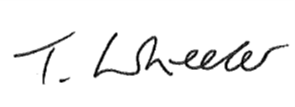 T. Wheeler